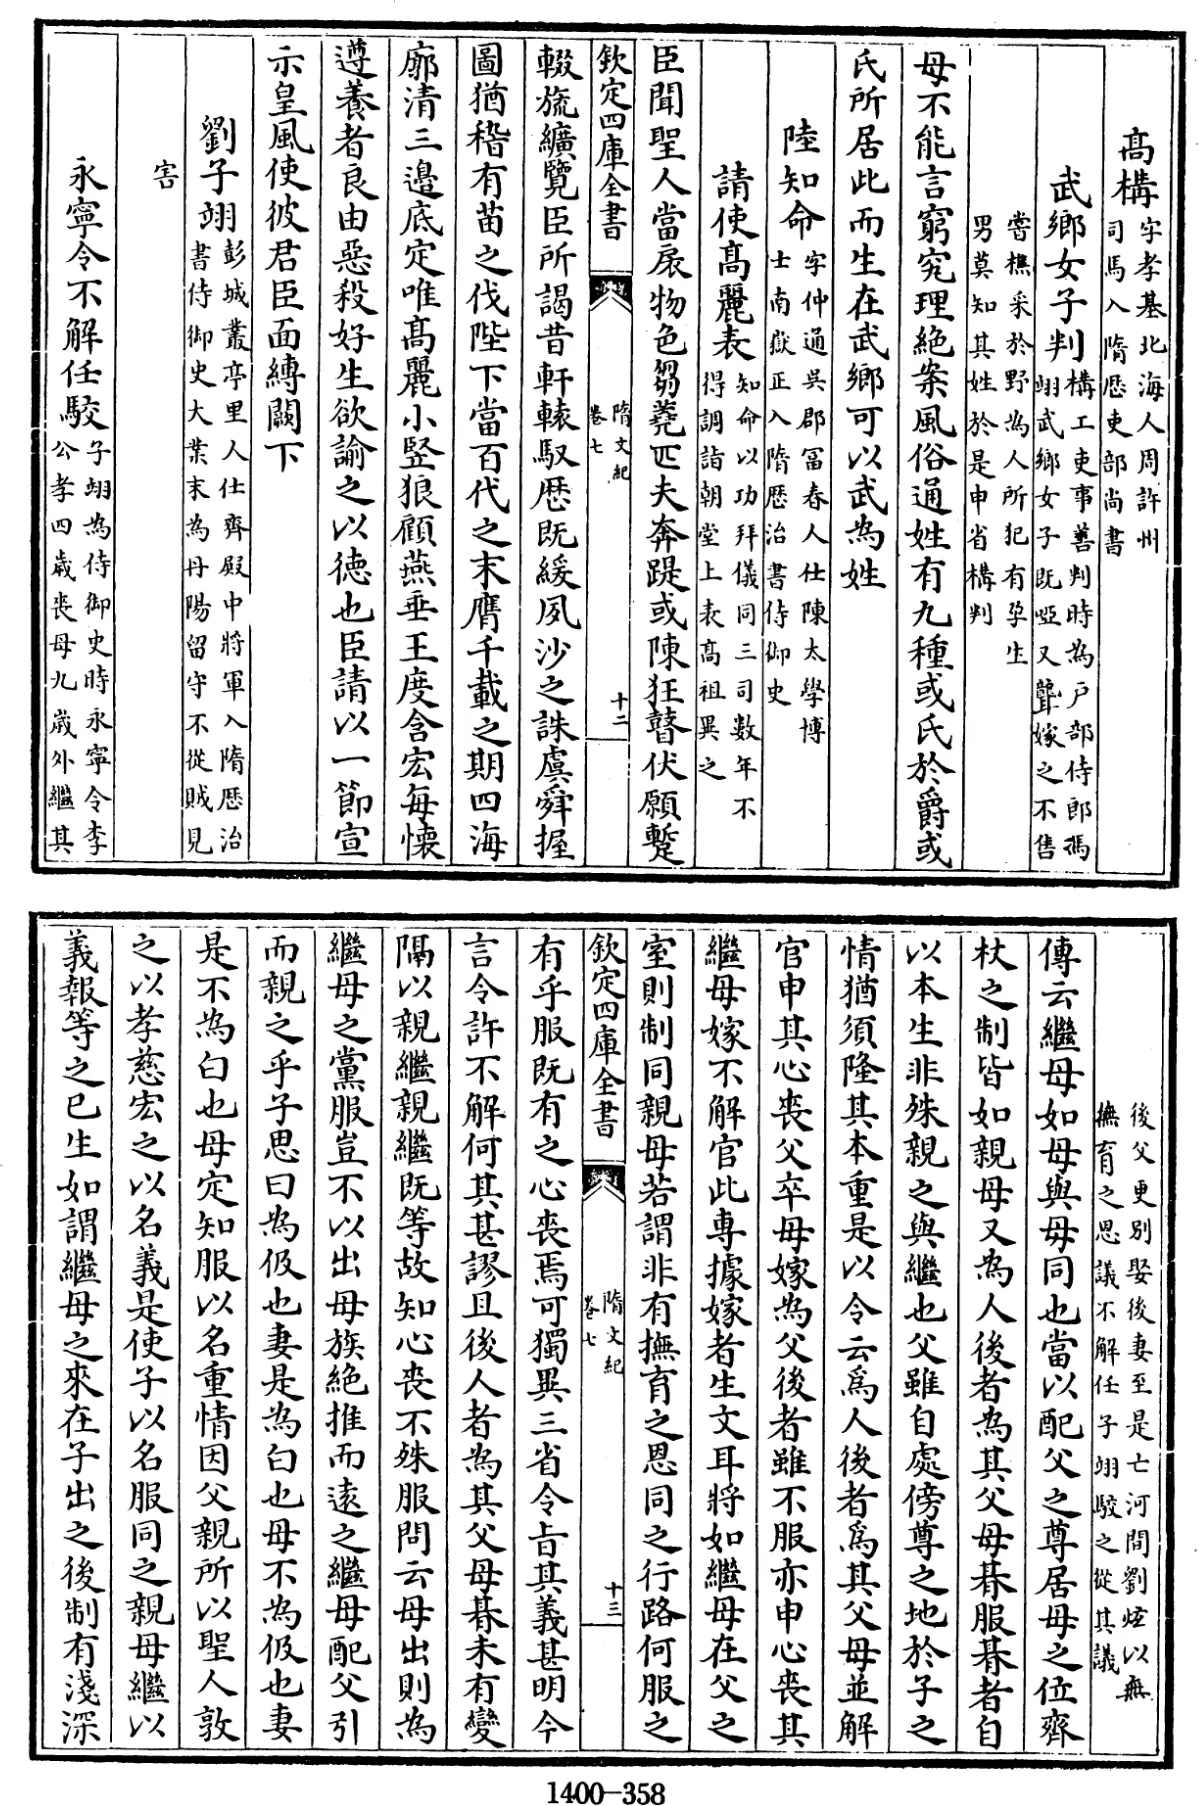 高構字孝基北海人周許州
司馬入隋歴吏部尚書
武鄉女子判構工吏事善判時為戸部侍郎馮
翊武鄉女子既啞又聾嫁之不售
嘗樵采於野為人所犯有孕生
男莫知其姓於是申省構判
母不能言窮究理絶案風俗通姓有九種或氏於爵或
氏所居此而生在武鄉可以武為姓
陸知命字仲通吳郡冨春人仕陳太學博
士南嶽正入隋歴治書侍御史
請使高麗表知命以功拜儀同三司數年不
得調詣朝堂上表高祖異之
臣聞聖人當扆物色芻蕘匹夫奔踶或陳狂瞽伏願蹔
欽定四庫全書
隋文紀
卷七
十二
輟旒纊覽臣所謁昔軒轅馭歴既緩夙沙之誅虞舜握
圖猶稽有苗之伐陛下當百代之末膺千載之期四海
廓清三邉底定唯高麗小竪狼顧燕垂王度含宏每懐
遵養者良由惡殺好生欲諭之以德也臣請以一節宣
示皇風使彼君臣面縛闕下
劉子翊彭城叢亭里人仕齊殿中將軍入隋歴治
書侍御史大業末為丹陽留守不從賊見
害
永寧令不解任駮子翊為侍御史時永寧令李
公孝四歳喪母九歳外繼其
後父更别娶後妻至是亡河間劉炫以無
撫育之恩議不解任子翊駮之從其議
傳云繼母如母與毋同也當以配父之尊居母之位齊
杖之制皆如親母又為人後者為其父母朞服朞者自
以本生非殊親之與繼也父雖自處傍尊之地於子之
情猶須隆其本重是以令云爲人後者爲其父母並解
官申其心喪父卒母嫁為父後者雖不服亦申心喪其
繼母嫁不解官此専據嫁者生文耳將如繼母在父之
室則制同親母若謂非有撫育之恩同之行路何服之
欽定四庫全書
隋文紀
卷七
十三
有乎服既有之心喪焉可獨異三省令旨其義甚明今
言令許不解何其甚謬且後人者為其父母朞未有變
隔以親繼親繼既等故知心喪不殊服問云母出則為
繼母之黨服豈不以出母族絶推而遠之繼母配父引
而親之乎子思曰為伋也妻是為白也母不為伋也妻
是不為白也母定知服以名重情因父親所以聖人敦
之以孝慈宏之以名義是使子以名服同之親母繼以
義報等之已生如謂繼母之來在子出之後制有淺深
1400-358